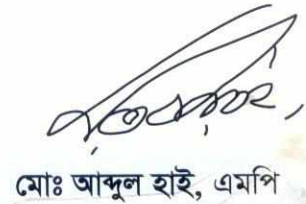 মোঃ আব্দুল হাই, এমপি